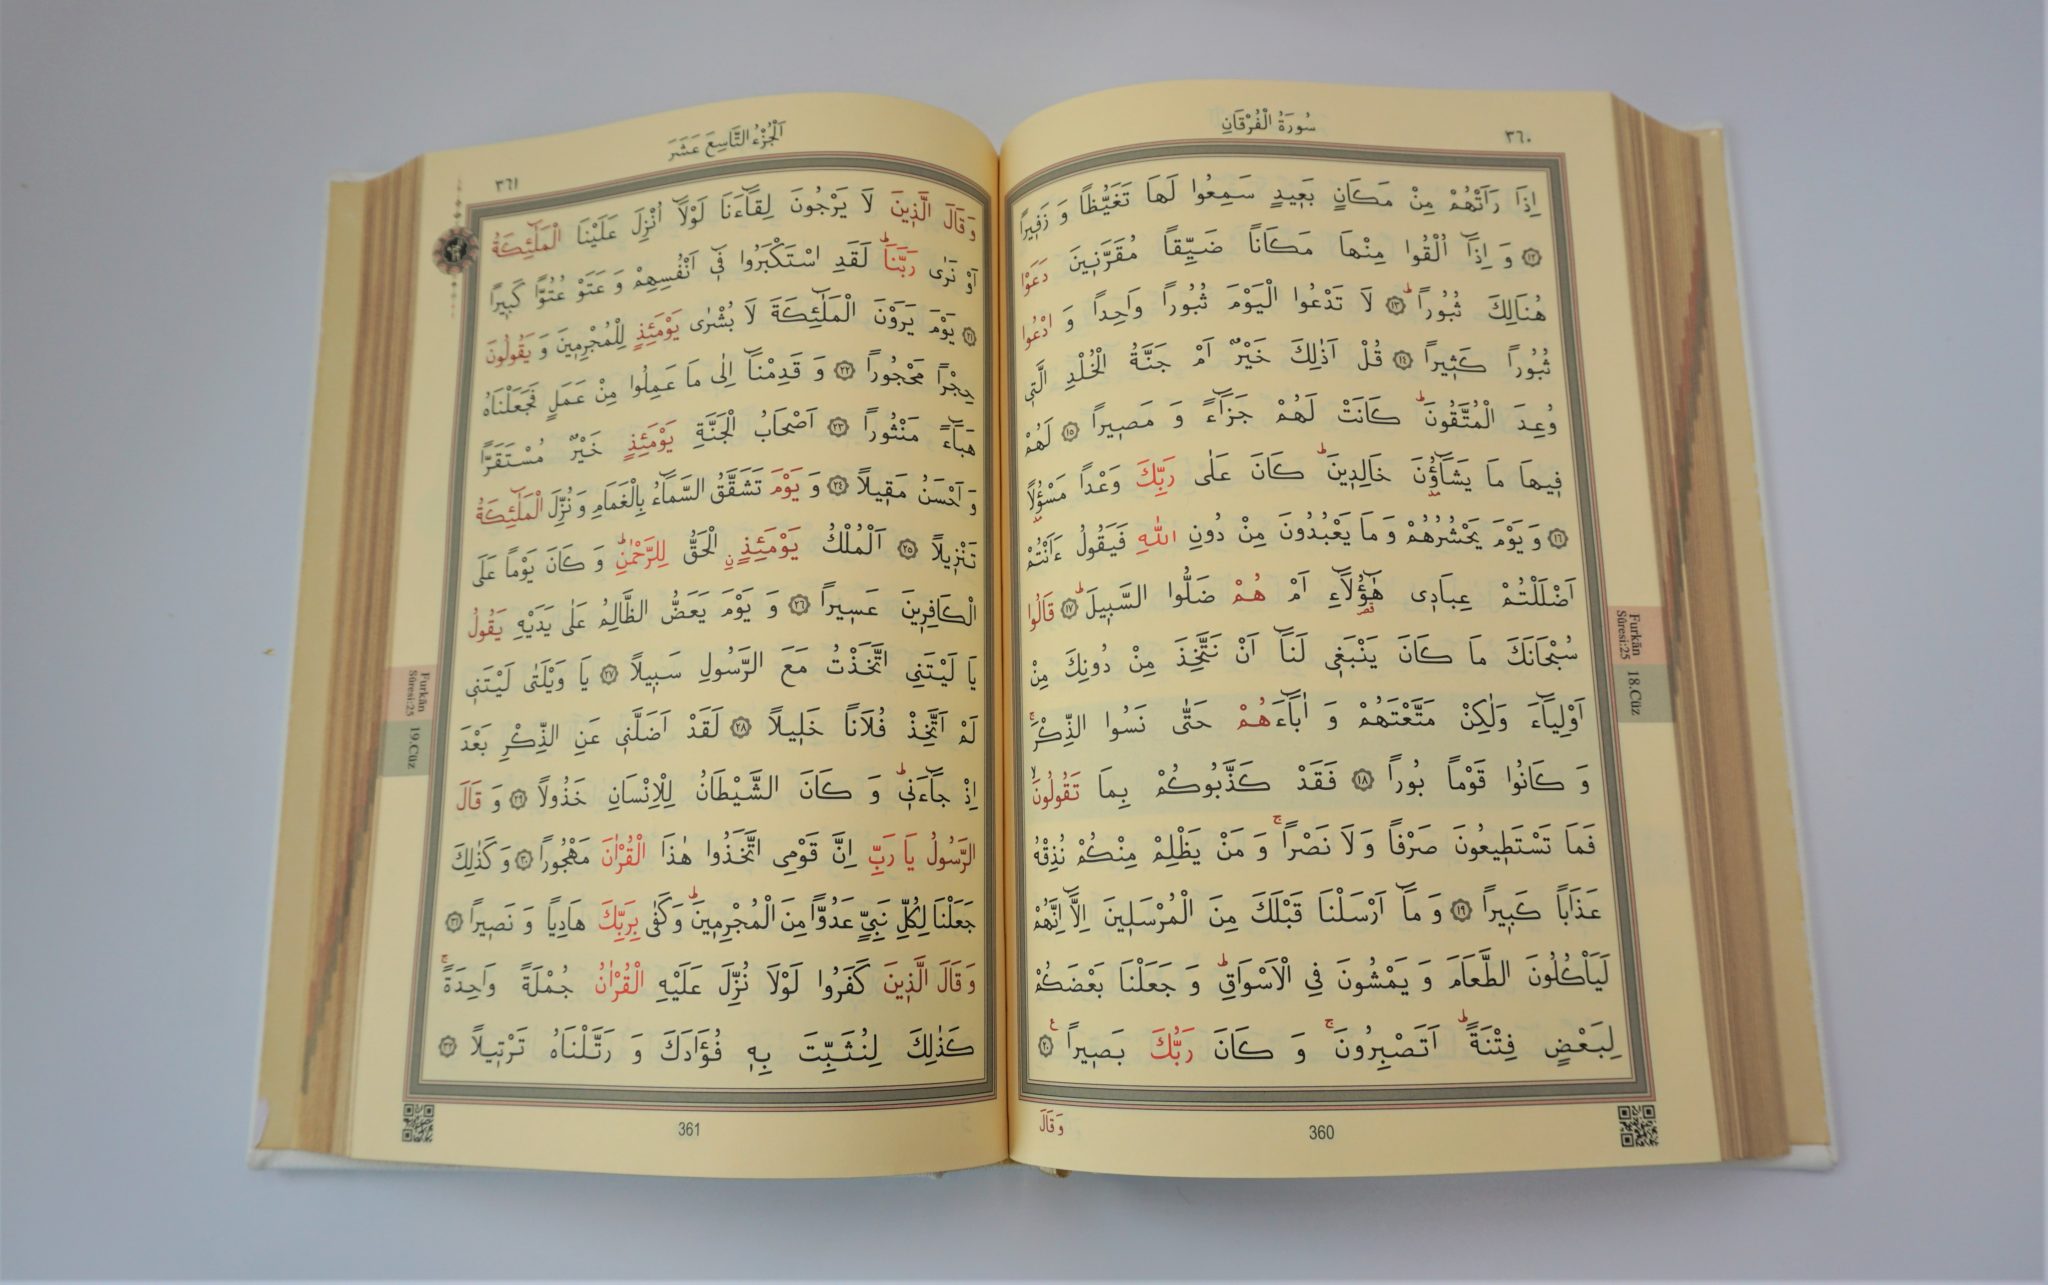 سُورَةُ الْفُرْقَانِ
٣٦٠
اِذَا رَاَتْهُمْ مِنْ مَكَانٍ بَعٖيدٍ سَمِعُوا لَهَا تَغَيُّظًا وَ زَفٖيرًا
﴿١٢﴾ وَ اِذَٓا اُلْقُوا مِنْهَا مَكَانًا ضَيِّقًا مُقَرَّنٖينَ دَعَوْا
هُنَالِكَ ثُبُورًاؕ ﴿١٣﴾ لَا تَدْعُوا الْيَوْمَ ثُبُورًا وَاحِدًا وَ ادْعُوا
ثُبُورًا كَثٖيرًا ﴿١٤﴾ قُلْ اَذٰلِكَ خَيْرٌ اَمْ جَنَّةُ الْخُلْدِ الَّتٖى
وُعِدَ الْمُتَّقُونَؕ كَانَتْ لَهُمْ جَزَٓاءً وَ مَصٖيرًا ﴿١٥﴾ لَهُمْ
فٖيهَا مَا يَشَٓاؤُ۫نَ خَالِدٖينَؕ كَانَ عَلٰى رَبِّكَ وَعْدًا مَسْؤُ۫لًا
﴿١٦﴾ وَ يَوْمَ يَحْشُرُهُمْ وَ مَا يَعْبُدُونَ مِنْ دُونِ اللّٰهِ فَيَقُولُ ءَاَنْتُمْ
اَضْلَلْتُمْ عِبَادٖى هٰٓؤُ۬لَٓاءِ اَمْ هُمْ ضَلُّوا السَّبٖيلَؕ ﴿١٧﴾ قَالُوا
سُبْحَانَكَ مَا كَانَ يَنْبَغٖى لَنَٓا اَنْ نَتَّخِذَ مِنْ دُونِكَ مِنْ
اَوْلِيَٓاءَ وَلٰكِنْ مَتَّعْتَهُمْ وَ اٰبَٓاءَهُمْ حَتّٰى نَسُوا الذِّكْرَۚ
وَ كَانُوا قَوْمًا بُورًا ﴿١٨﴾ فَقَدْ كَذَّبُوكُمْ بِمَا تَقُولُونَۙ
فَمَا تَسْتَطٖيعُونَ صَرْفًا وَ لَا نَصْرًاۚ وَ مَنْ يَظْلِمْ مِنْكُمْ نُذِقْهُ
عَذَابًا كَبٖيرًا ﴿١٩﴾ وَ مَٓا اَرْسَلْنَا قَبْلَكَ مِنَ الْمُرْسَلٖينَ اِلَّٓا اِنَّهُمْ
لَيَاْكُلُونَ الطَّعَامَ وَ يَمْشُونَ فِى الْاَسْوَاقِؕ وَ جَعَلْنَا بَعْضَكُمْ
لِبَعْضٍ فِتْنَةًؕ اَتَصْبِرُونَۚ وَ كَانَ رَبُّكَ بَصٖيرًا ﴿٢٠﴾ ع
وَ قَالَ
360
Furkân
Sûresi:25
18.Cüz
اَلْجُزْءُ التَّاسِعَ عَشَرَ
٣٦١
وَ قَالَ الَّذٖينَ لَا يَرْجُونَ لِقَٓاءَنَا لَوْلَٓا اُنْزِلَ عَلَيْنَا الْمَلٰٓئِكَةُ
اَوْ نَرٰى رَبَّنَاؕ لَقَدِ اسْتَكْبَرُوا فٖٓى اَنْفُسِهِمْ وَ عَتَوْ عُتُوًّا كَبٖيرًا
﴿٢١﴾ يَوْمَ يَرَوْنَ الْمَلٰٓئِكَةَ لَا بُشْرٰى يَوْمَئِذٍ لِلْمُجْرِمٖينَ وَ يَقُولُونَ
حِجْرًا مَحْجُورًا ﴿٢٢﴾ وَ قَدِمْنَٓا اِلٰى مَا عَمِلُوا مِنْ عَمَلٍ فَجَعَلْنَاهُ
هَبَٓاءً مَنْثُورًا ﴿٢٣﴾ اَصْحَابُ الْجَنَّةِ يَوْمَئِذٍ خَيْرٌ مُسْتَقَرًّا
وَ اَحْسَنُ مَقٖيلًا ﴿٢٤﴾ وَ يَوْمَ تَشَقَّقُ السَّمَٓاءُ بِالْغَمَامِ وَ نُزِّلَ الْمَلٰٓئِكَةُ
تَنْزٖيلًا ﴿٢٥﴾ اَلْمُلْكُ يَوْمَئِذٍ نِ الْحَقُّ لِلرَّحْمٰنِؕ وَ كَانَ يَوْمًا عَلَى
الْكَافِرٖينَ عَسٖيرًا ﴿٢٦﴾ وَ يَوْمَ يَعَضُّ الظَّالِمُ عَلٰى يَدَيْهِ يَقُولُ
يَا لَيْتَنِى اتَّخَذْتُ مَعَ الرَّسُولِ سَبٖيلًا ﴿٢٧﴾ يَا وَيْلَتٰى لَيْتَنٖى
لَمْ اَتَّخِذْ فُلَانًا خَلٖيلًا ﴿٢٨﴾ لَقَدْ اَضَلَّنٖى عَنِ الذِّكْرِ بَعْدَ
اِذْ جَٓاءَنٖىؕ وَ كَانَ الشَّيْطَانُ لِلْاِنْسَانِ خَذُولًا ﴿٢٩﴾ وَ قَالَ
الرَّسُولُ يَا رَبِّ اِنَّ قَوْمِى اتَّخَذُوا هٰذَا الْقُرْاٰنَ مَهْجُورًا ﴿٣٠﴾ وَ كَذٰلِكَ
جَعَلْنَا لِكُلِّ نَبِىٍّ عَدُوًّا مِنَ الْمُجْرِمٖينَؕ وَ كَفٰى بِرَبِّكَ هَادِيًا وَ نَصٖيرًا ﴿٣١﴾
وَ قَالَ الَّذٖينَ كَفَرُوا لَوْلَا نُزِّلَ عَلَيْهِ الْقُرْاٰنُ جُمْلَةً وَاحِدَةًۚ
كَذٰلِكَ لِنُثَبِّتَ بِهٖ فُؤٰادَكَ وَ رَتَّلْنَاهُ تَرْتٖيلًا ﴿٣٢﴾
361
Furkân
Sûresi:25
19.Cüz